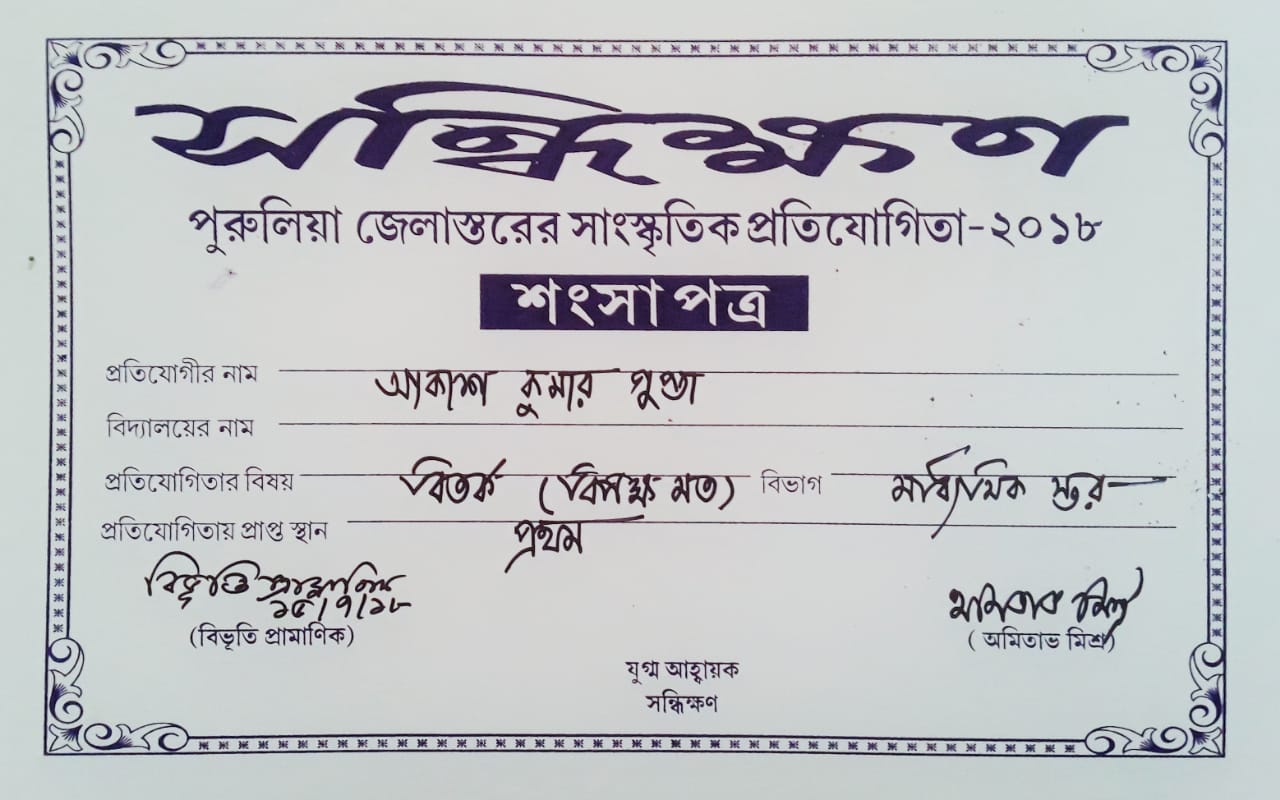 সন্ধিক্ষণ
পুরুলিয়া জেলাস্তরের সাংস্কৃতিক প্রতিযোগিতা-২০১৮
শংসাপত্র
প্রতিযোগীর নাম আকাশ কুমার গুপ্তা
বিদ্যালয়ের নাম
প্রতিযোগিতার বিষয় বিতর্ক (বিপক্ষ মত) বিভাগ মাধ্যমিক স্তর
প্রতিযোগিতায় প্রাপ্ত স্থান প্রথম
বিভূতি প্রামাণিক
১৫/৭/১৮
(বিভূতি প্রামাণিক)
অমিতাভ মিশ্র
(অমিতাভ মিশ্র)
যুগ্ম আহ্বায়ক
সন্ধিক্ষণ